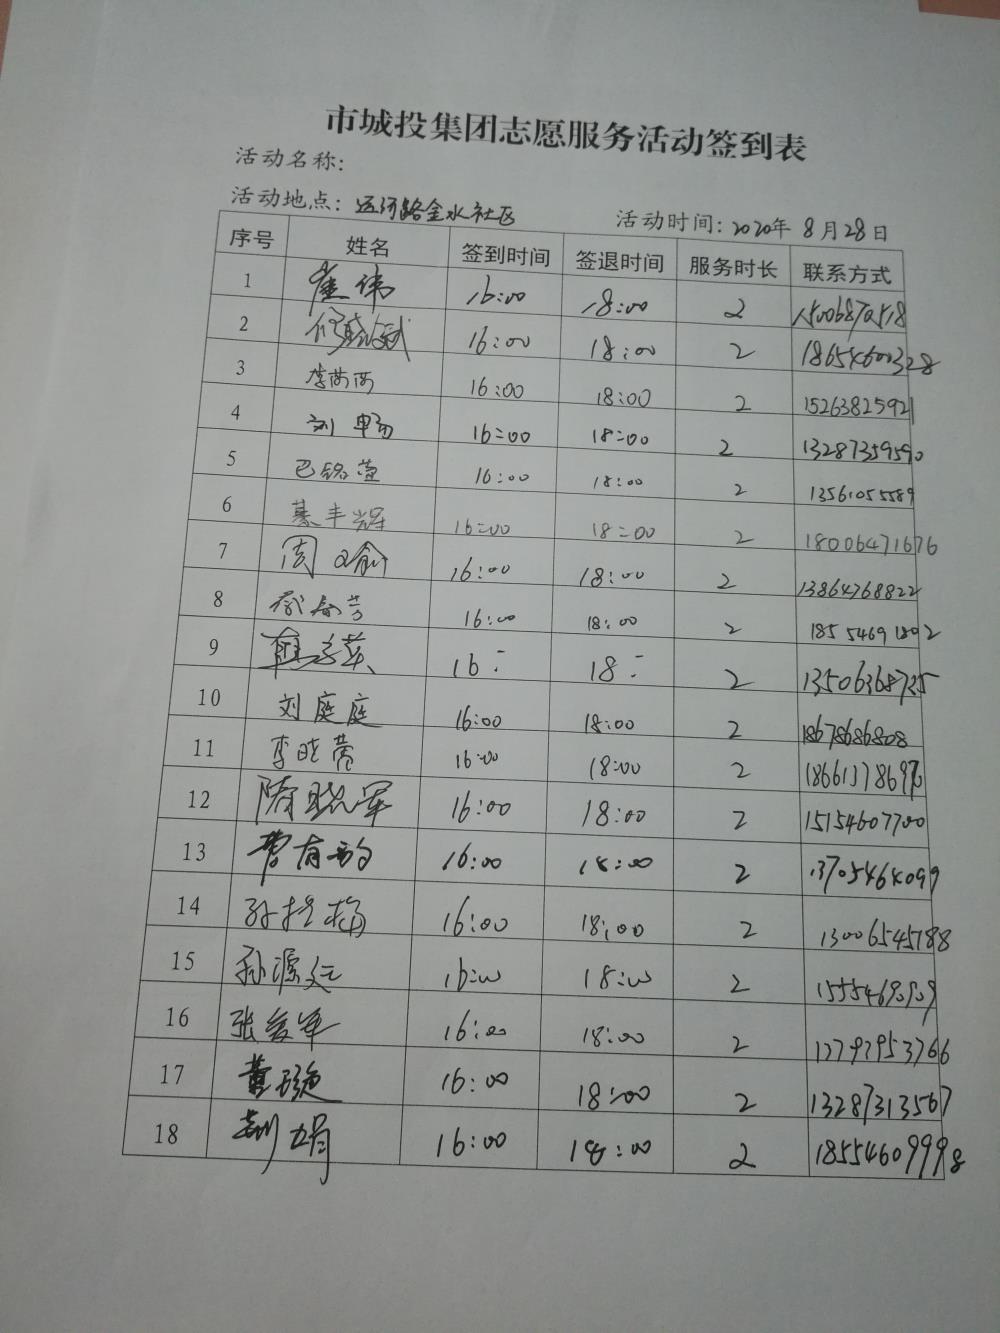 市城投集团志愿服务活动签到表
活动名称:
活动地点: 运河路金水社区 活动时间: 2020年 8月28日
序号 姓名 签到时间 签退时间 服务时长 联系方式
1 崔伟 16:00 18:00 2 15006870518
2 16:00 18:00 2 18654600328
3 李芮芮 16:00 18:00 2 15263825921
4 刘畅 16:00 18:00 2 13287359590
5 巴铭萱 16:00 18:00 2 13561055589
6 綦丰辉 16:00 18:00 2 18006471676
7 周文俞 16:00 18:00 2 13864768822
8 16:00 18:00 2 18554691802
9 16: 18: 2 13506368735
10 刘庭庭 16:00 18:00 2 18678686808
11 李晓蕾 16:00 18:00 2 1866137869
12 隋晓军 16:00 18:00 2 15154607700
13 曹有 16:00 18:00 2 13705464099
14 孙 梅 16:00 18:00 2 13006545188
15 孙源 16:00 18:00 2
16 张 军 16:00 18:00 2
17 黄 16:00 18:00 2 13287313567
18 16:00 18:00 2 18554609998